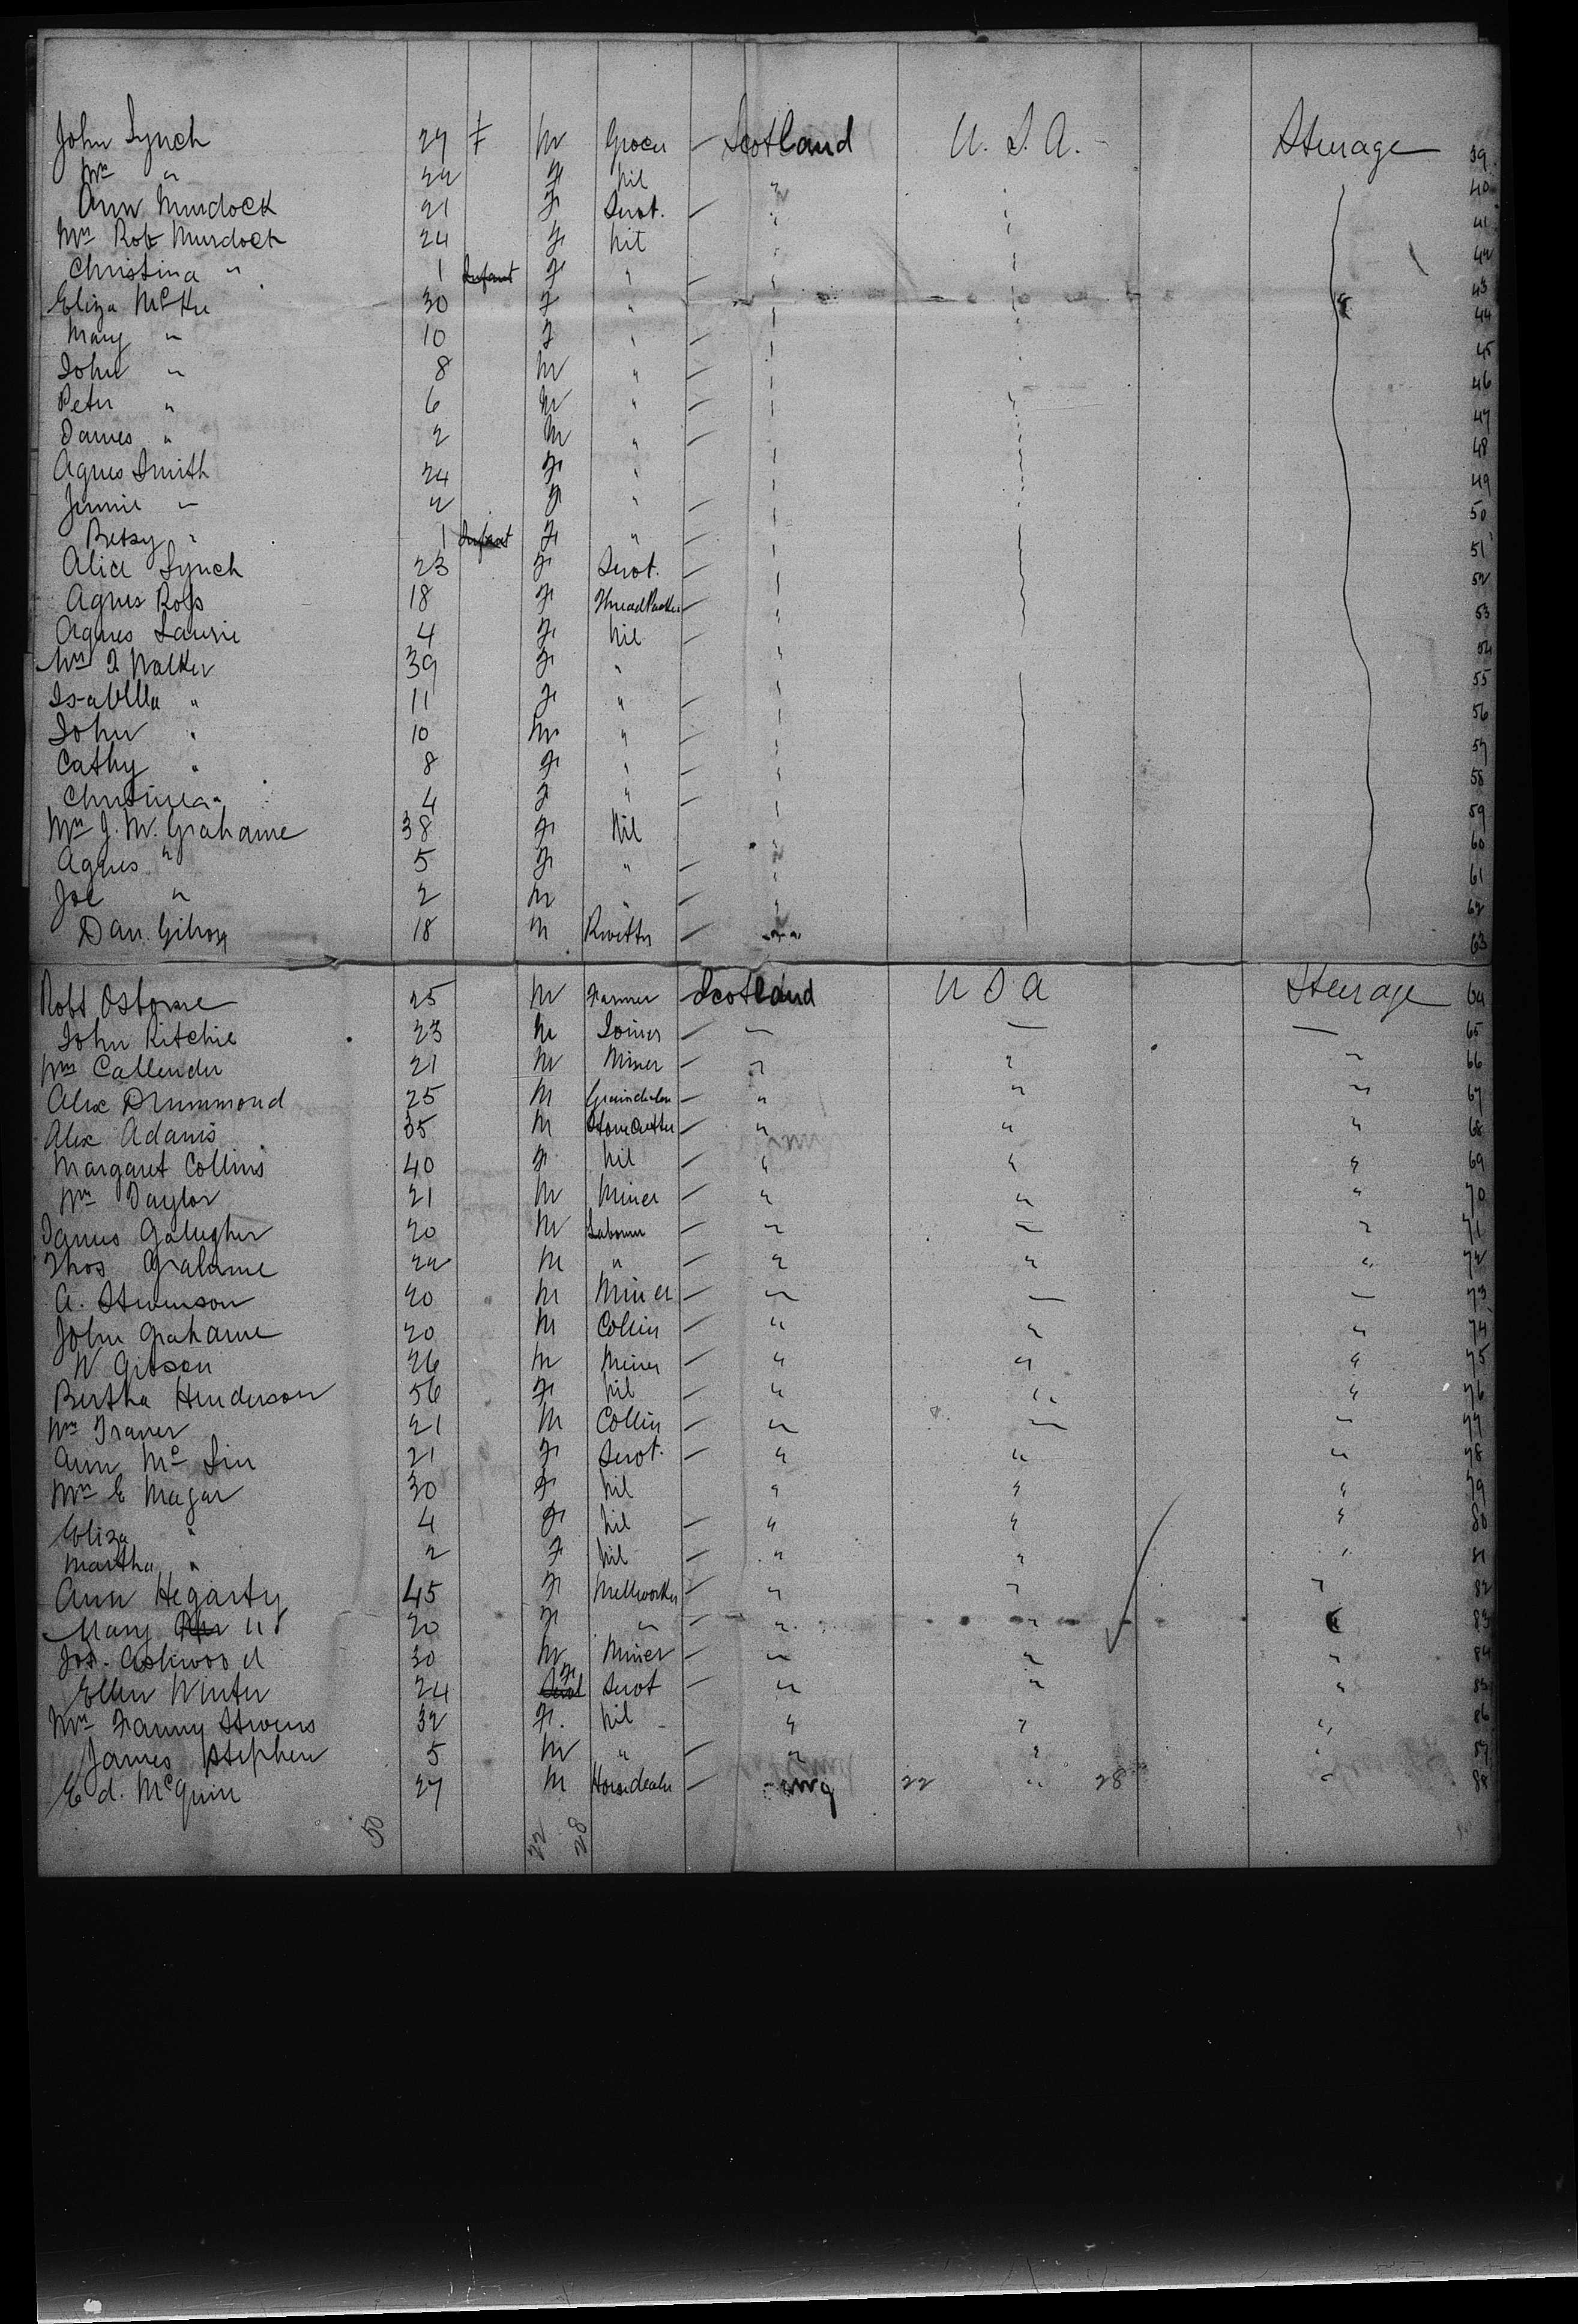 John Lynch 27 F M Grocer Scotland U. S. A. Steerage 39
Mrs " 22 F Nil " " 40
Ann Murdock 21 F Servt. " " 41
Mrs Robt Murdock 24 F Nil " " 42
Christina " 1 Infant F " " " 43
Eliza McKee 30 F " " " 44
Mary " 10 F " " 45
John " 8 M " " 46
Peter " 6 M " " " 47
James " 2 M " " " 48
Agnes Smith 24 F " " " 49
Jennie " 2 F " " " 50
Betsy " 1 Infant F " " 51
Alice Lynch 23 F Servt. " 52
Agnes Ross 18 F Thread Packer " 53
Agnes Laurie 4 F Nil " 54
Mrs J Walker 39 F " " 55
Isabella " 11 F " " 56
John " 10 M " " 57
Cathy " 8 F " " 58
Christina " 4 F " " 59
Mrs J. M. Grahame 38 F Nil " 60
Agnes " 5 F " " 61
Joe " 2 M " " 62
Dan Gilroy 18 M Rivetter " 63
Robt Osborne 25 M Farmer Scotland U S A Steerage 64
John Ritchie 23 M Joiner " " " 65
Wm Callender 21 M Miner " " " 66
Alex Drummond 25 M Graindealer " " " 67
Alex Adams 35 M Stone Cutter " " " 68
Margaret Collins 40 F Nil " " " 69
Wm Taylor 21 M Miner " " " 70
James Gallagher 20 M Labourer " " " 71
Thos Grahame 22 M " " " " 72
A. Stevenson 20 M Miner " " " 73
John Grahame 20 M Collier " " " 74
W Gibson 26 M Miner " " " 75
Bertha Henderson 56 F Nil " " " 76
Wm Fraser 21 M Collier " " " 77
Ann Mc 21 F Servt. " " " 78
Mrs E Magar 30 F Nil " " " 79
Eliza " 4 F Nil " " " 80
Martha " 2 F Nil " " " 81
Ann Hegarty 45 F Millworker " " " 82
Mary " 20 F " " " " 83
Jos. Askwood 30 M Miner " " " 84
Ellen Winter 24 F Servt " " " 85
Mrs Fanny Stevens 32 F. Nil " " " 86
James Stephen 5 M " " " " 87
Ed. McQuin 27 M Horsedealer " 22 " 28 " 88
50 22 28